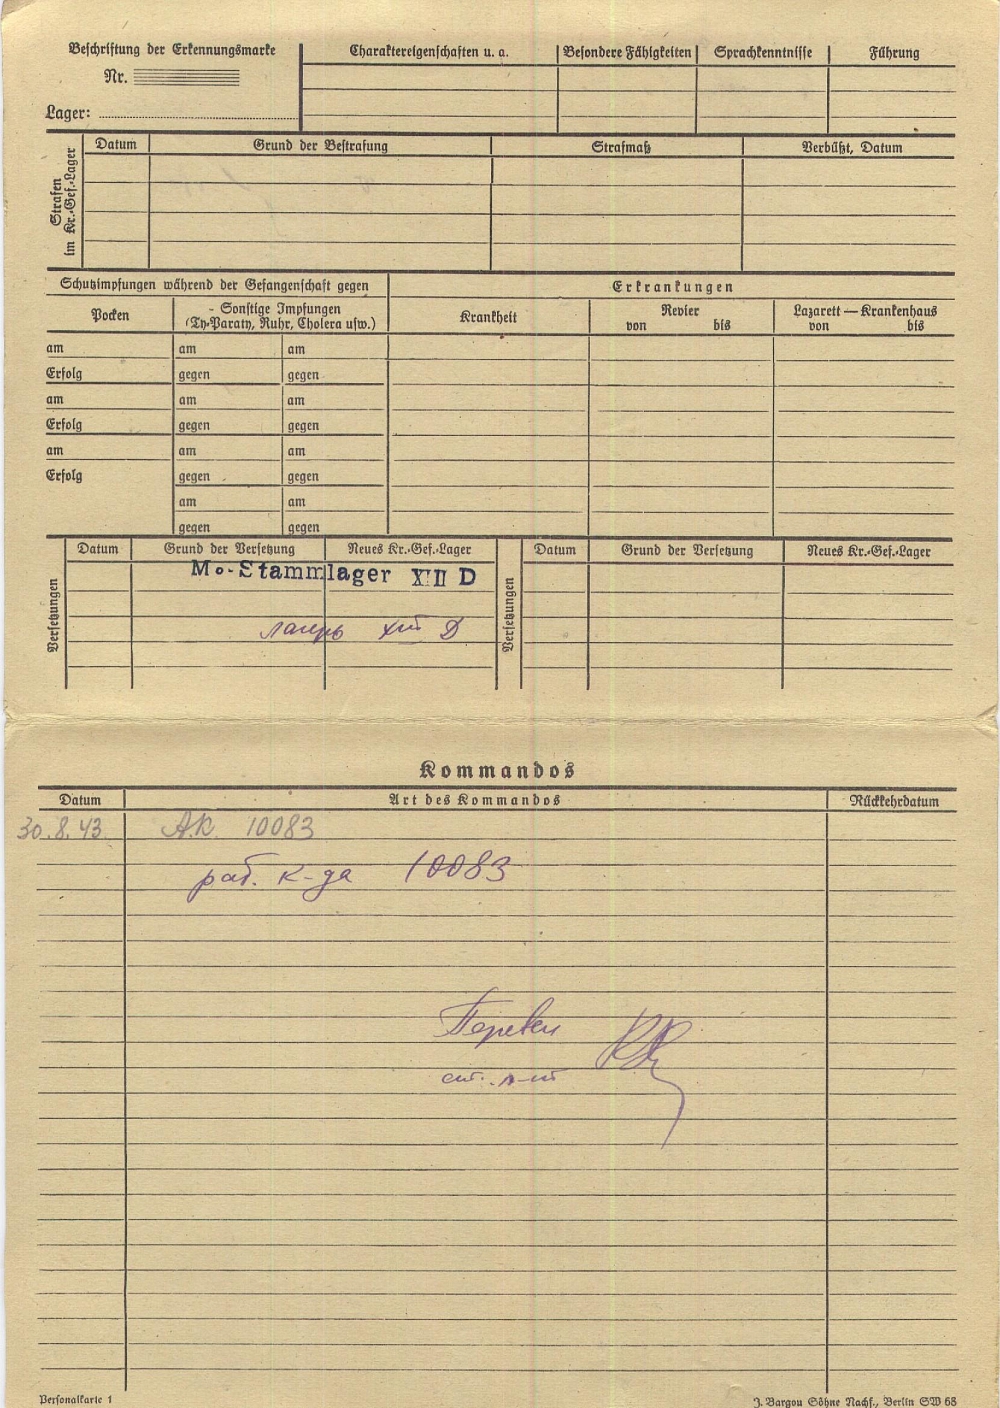 Beschriftung der Erkennungsmarke
Nr.
Lager:
Charaktereigenschaften u. a.
Besondere Fähigkeiten
Sprachkenntnisse
Führung
Strafen im Kr.-Gef.-Lager
Datum
Grund der Bestrafung
Strafmaß
Verbüßt, Datum
Schutzimpfungen während der Gefangenschaft gegen
Erkrankungen
Pocken
Sonstige Impfungen
(Ty-Paraty, Ruhr, Cholera usw.)
Krankheit
Revier
von bis
Lazarett — Krankenhaus
von bis
am am am
Erfolg gegen gegen
am am am
Erfolg gegen gegen
am am am
Erfolg gegen gegen
am am
gegen gegen
Versetzungen
Datum
Grund der Versetzung
Neues Kr.-Gef.-Lager
M.-Stammlager XIII D
лагерь XIII D
Versetzungen
Datum
Grund der Versetzung
Neues Kr.-Gef.-Lager
Kommandos
Datum
Art des Kommandos
Rückkehrdatum
30.8.43 A.K. 10083
раб. к-да 10083
Перевел
ст. л-т
Personalkarte 1
J. Bargou Söhne Nachf., Berlin SW 68